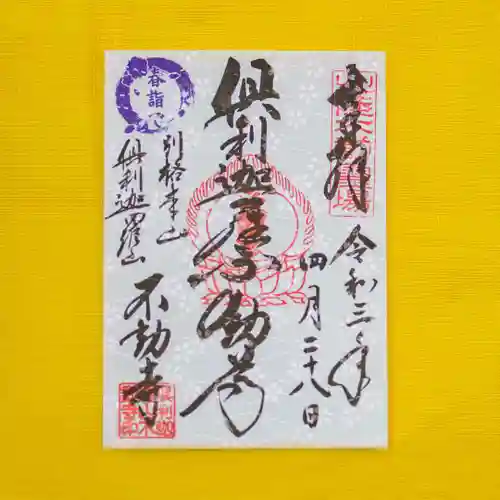 奉拝
令和三年
四月二十八日
倶利迦羅不動尊
春詣
別格本山
倶利迦羅山
不動寺